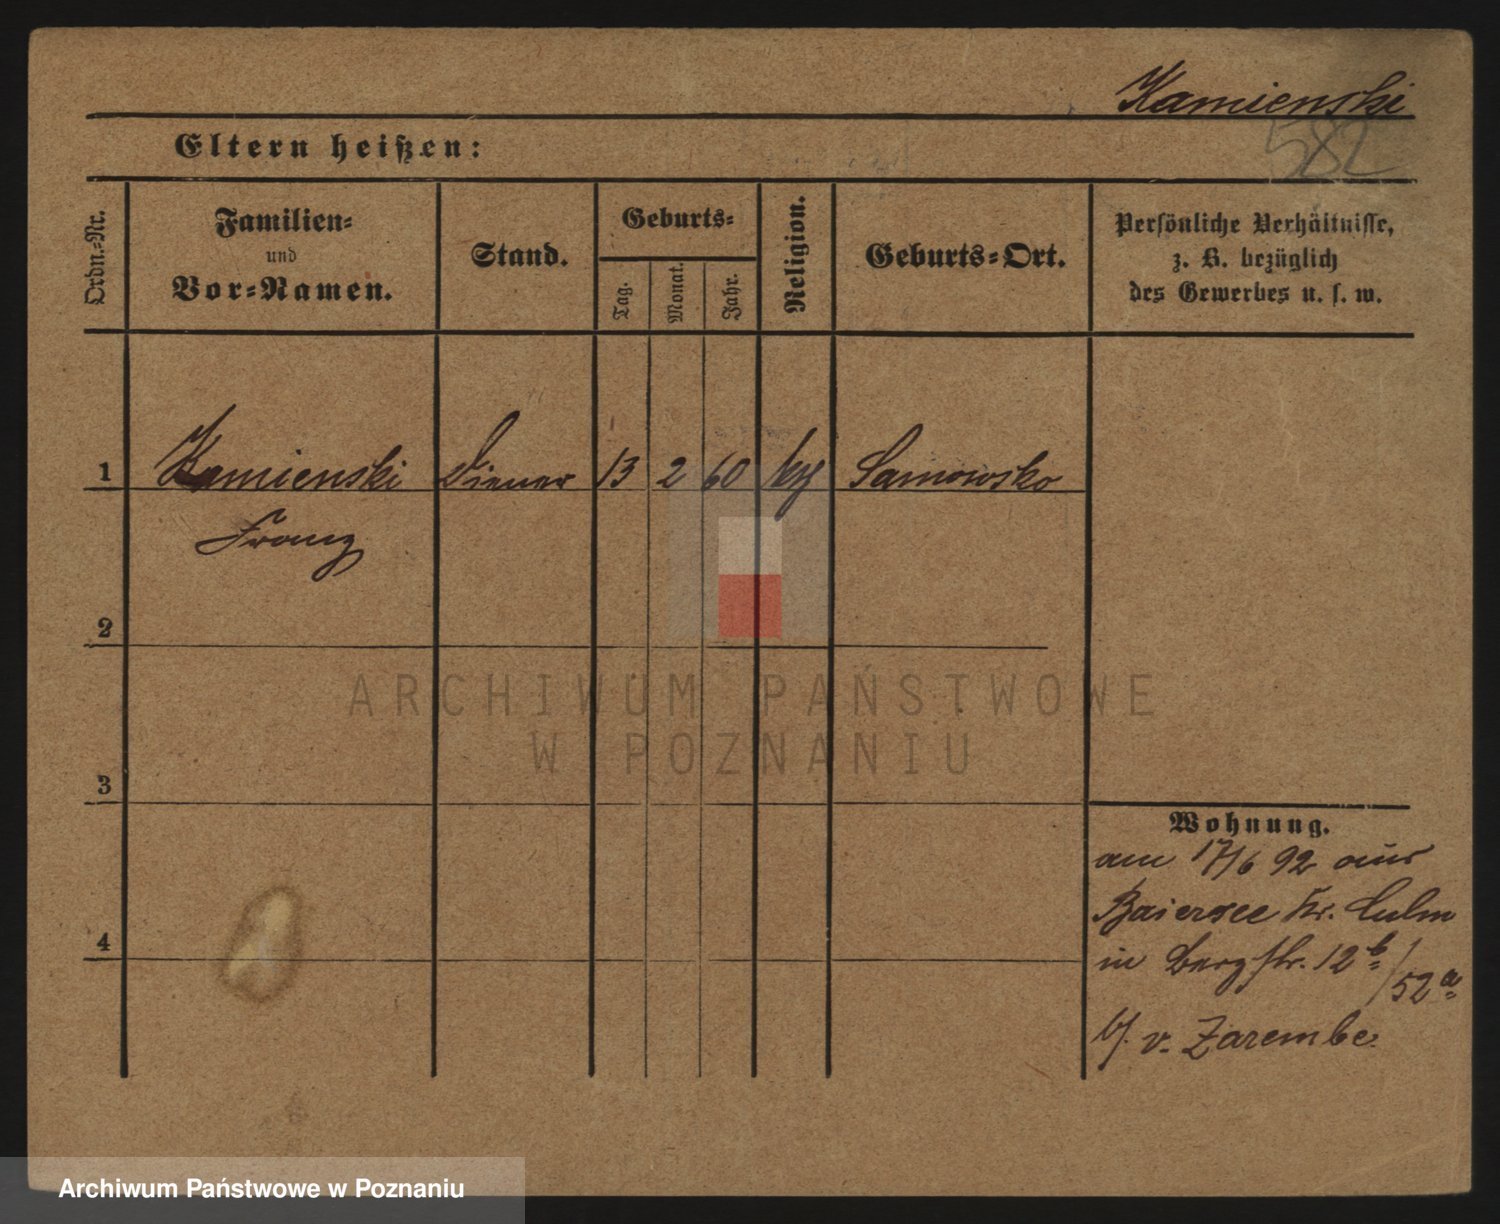 Kamienski
582
Eltern heißen:
Ordn.-Nr.
Familien-
und
Vor-Namen.
Stand.
Geburts-
Tag.
Monat.
Jahr.
Religion.
Geburts-Ort.
Persönliche Verhältnisse,
z. B. bezüglich
des Gewerbes u. s. w.
1 Kamienski Diener 13 2 60 Samowsko
Franz
2
3
4
Wohnung.
am 17/6 92 aus
Baiersee Kr. Culm
in Bergstr. 12 b / 52 a
b/. v. Zarembe
ARCHIWUM PAŃSTWOWE
W POZNANIU
Archiwum Państwowe w Poznaniu